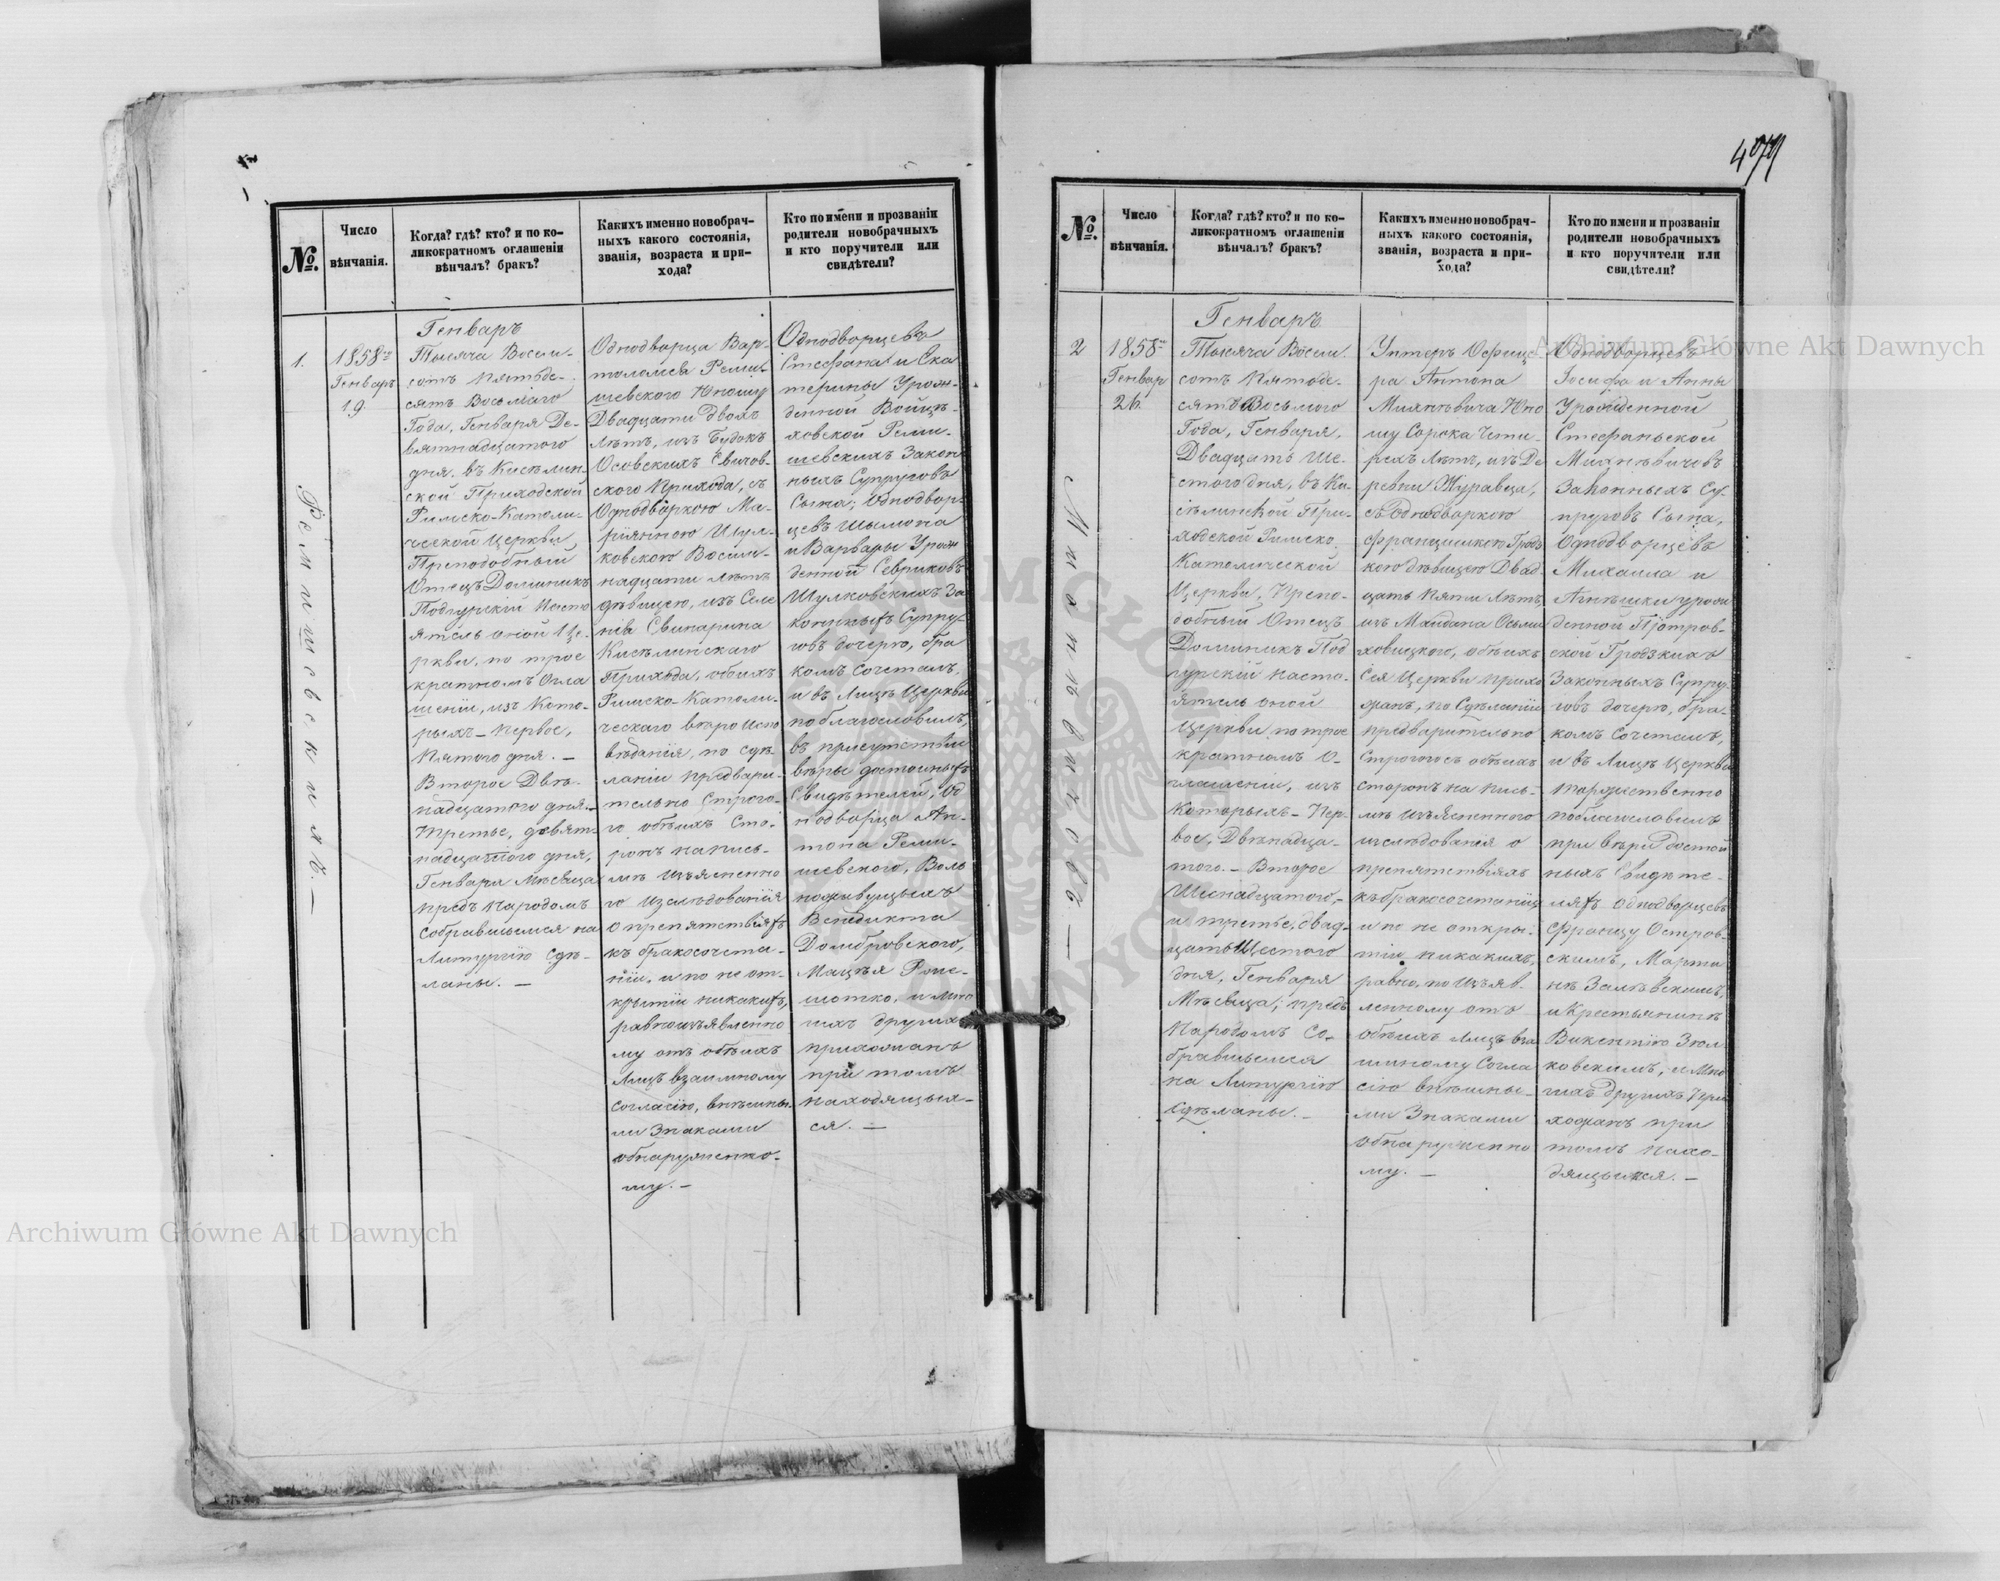 №.
Число
вѣнчанія.
Когда? гдѣ? кто? и по ко-
ликократномъ оглашеніи
вѣнчалъ? бракъ?
Какихъ именно новобрач-
ныхъ какого состоянія,
званія, возраста и при-
хода?
Кто по имени и прозваніи
родители новобрачныхъ
и кто поручители или
свидѣтели?
1.
1858
Генваръ
19.
Генваръ
Тысяча Восем-
сотъ пятьде-
сятъ Восьмаго
Года, Генваря Де-
вятнадцатого
дня. въ Киселин-
ской Приходской
Римско-Католи-
ческой Церкви,
Преподобный
Отецъ Доминикъ
Подгурскій Насто
ятель оной Це-
ркви, по трое
кратномъ Огла
шеніи, изъ Кото-
рыхъ - первое,
Пятого дня. -
Второе Двѣ-
надцатого дня. -
третье, девят-
надцатого дня,
Генваря Мѣсяца
предъ Народомъ
собравшимся на
Литургію сдѣ-
ланы. -
Однодворца Вар-
толомея Реми-
шевского Юношу
Двадцати Двохъ
Лѣтъ, изъ Будокъ
Осовскихъ Свичов-
ского Прихода, съ
Однодворкою Ма-
ріянною Шул-
ковскою Восем-
надцати лѣтъ
дѣвицею, изъ Селе
нія Свинарина
Киселинскаго
Прихода, обоихъ
Римско-Католи-
ческаго вѣроиспо
вѣданія, по сдѣ-
ланіи предвари-
тельно Строго-
го обѣихъ Сто-
ронъ напись-
мѣ изъясненно
го изслѣдованія
о препятствіяхъ
къ бракосочета-
нію, и по не от-
крытіи никакихъ,
равно изъявленно
му отъ обѣихъ
Лицъ взаимному
согласію, внѣшны-
ми Знаками
обнаруженно-
му. -
Однодворцевъ
Стефана и Ека
терины Урож-
денной Войцѣ-
ховской Реми-
шевскихъ Закон
ныхъ Супруговъ
Сына; Однодвор-
цевъ Шымона
и Варвары Урож
денной Севриковъ
Шулковскихъ За
конныхъ Супру-
говъ дочерю, бра
комъ Сочеталъ,
и въ Лицѣ Церкви
поблагословилъ,
въ присутствіи
вѣры достойныхъ
Свидѣтелей, Од
нодворца Ан-
тона Реми-
шевского, Воль
ноживущыхъ
Венедикта
Домбровского,
и мно
гихъ другихъ
прихожанъ
при томъ
находящых-
ся. -
Ремишевскихъ. -
4
№.
Число
вѣнчанія.
Когда? гдѣ? кто? и по ко-
ликократномъ оглашеніи
вѣнчалъ? бракъ?
Какихъ именно новобрач-
ныхъ какого состоянія,
званія, возраста и при-
хода?
Кто по имени и прозваніи
родители новобрачныхъ
и кто поручители или
свидѣтели?
2
1858
Генвар
26.
Генваръ
Тысяча Восем
сотъ Пятьде-
сятъ Восьмого
Года, Генваря,
Двадцать Ше-
стого дня, въ Ки-
селинской При-
ходской Римско
Католической
Церкви, Препо-
добный Отецъ
Доминикъ Под
гурскій Насто-
ятель оной
Церкви, по трое
кратномъ О-
глашеніи, изъ
Которыхъ - Пер-
вое, Двѣнадца-
того. - Второе
Шеснадцатого, -
и третье, двад-
цать Шестого
дня, Генваря
Мѣсяца; предъ
Народомъ Со-
бравшимся
на Литургію
сдѣланы. -
Унтеръ Офице-
ра Антона
Юно
шу Сорока Чети-
рехъ Лѣтъ, изъ Де
ревни Журавца,
съ Однодворкою
Францишкою Гродз
кою дѣвицею Двад-
цать Пяти Лѣтъ,
изъ Майдана Осьми
ховицкого, обѣихъ
Сія Церкви прихо
жанъ, по Сдѣланіи
предварительно
Строгого съ обѣихъ
сторонъ на пись-
мѣ изъясненного
изслѣдованія о
препятствіяхъ
къ бракосочетанію,
и по не откры-
тіи никакихъ,
равно, по Изъяв-
ленному отъ
обѣихъ лицъ вза
имному Согла
сію внѣшны-
ми Знаками
обнаруженно
му. -
Однодворцевъ
Іосифа и Анны
Урожденной
Стефаньской
Законныхъ Су-
пруговъ Сына,
Однодворцевъ
Михаила и
Агнѣшки урож
денной Піотров-
ской Гродзкихъ
Законныхъ Супру-
говъ дочерю, бра-
комъ Сочеталъ,
и въ Лицѣ Церкви
торжественно
поблагословилъ
при вѣрѣ достой
ныхъ Свидѣте-
ляхъ Однодворцевъ
Францу Остров-
скимъ, Марти
нѣ Залѣвскимъ,
и Крестьянинѣ
Викентію Зюл
ковскимъ, и Мно
гихъ Другихъ При
хожанъ при
томъ нахо-
дящыхся. -
Archiwum Główne Akt Dawnych
Archiwum Główne Akt Dawnych